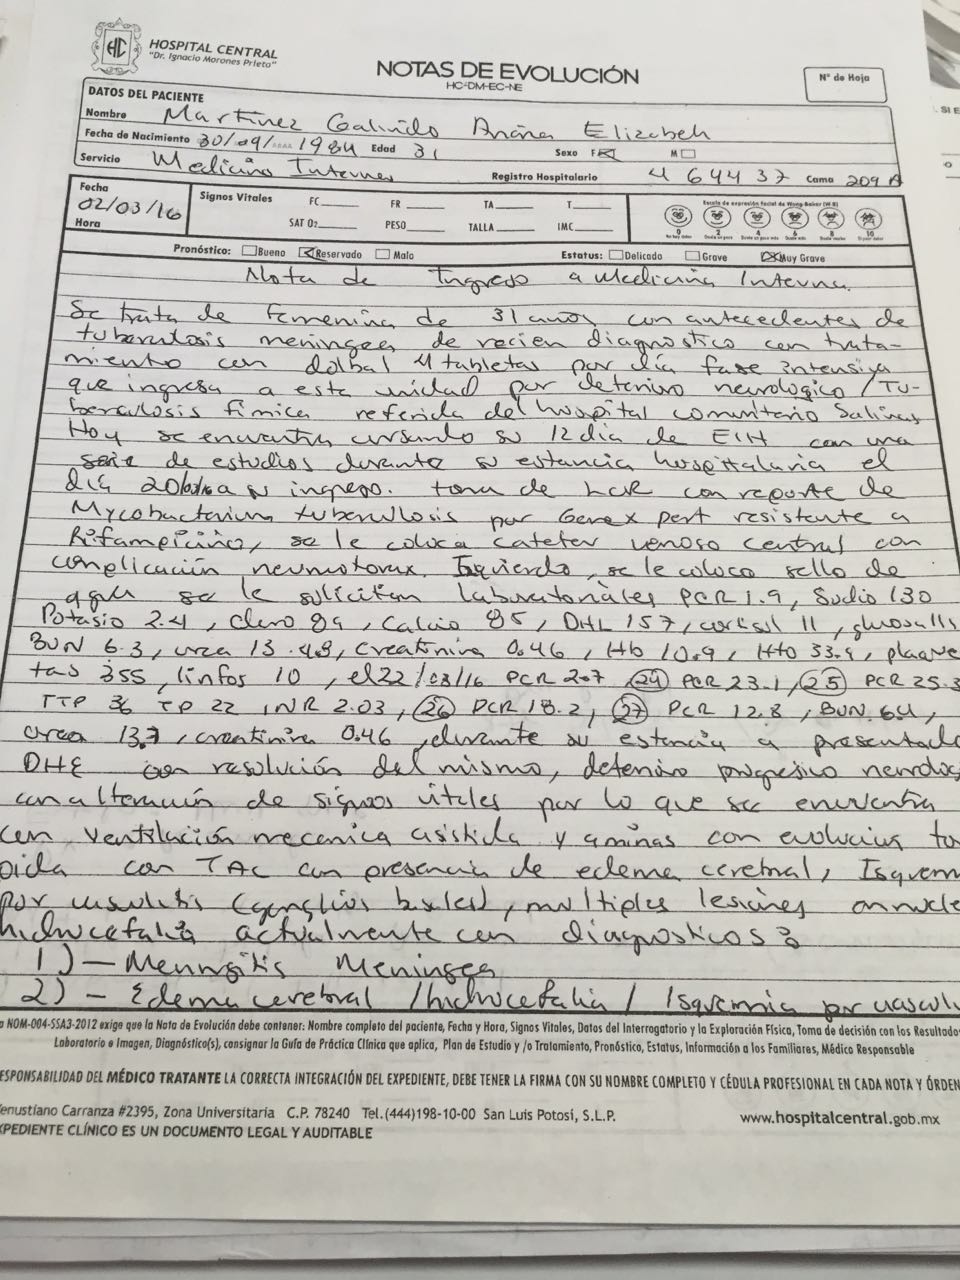 HC
HOSPITAL CENTRAL
"Dr. Ignacio Morones Prieto"
NOTAS DE EVOLUCIÓN
HC-DM-EC-NE
Nº de Hoja
DATOS DEL PACIENTE
Nombre Martinez Galindo Elizabeh
Fecha de Nacimiento 30/09/ 1984 Edad 31 Sexo F M
Servicio Medicina Interna Registro Hospitalario 464437 Cama 209 A
Fecha 02/03/16 Signos Vitales FC FR TA T Escala de expresión facial de Wong-Baker
Hora SAT O2 PESO TALLA IMC 0 2 4 6 8 10
Pronóstico: Bueno Reservado Malo Estatus: Delicado Grave Muy Grave
Nota de Ingreso a Medicina Interna.
Se trata de femenina de 31 años con antecedentes de
tuberculosis meningea de recien diagnostico con trata-
miento con dotbal 4 tabletas por día fase intensiva
que ingresa a esta unidad por deterioro neurologico / Tu-
berculosis fimica referida del hospital comunitario Salinas
Hoy se encuentra cursando su 12 dia de EIH con una
serie de estudios durante su estancia hospitalaria el
día a su ingreso. toma de LCR con reporte de
Mycobacterium tuberculosis por Genex pert resistente a
Rifampicina, se le coloca cateter venoso central con
complicación neumotorax. Izquierdo, se le coloco sello de
agua se le solicitan laboratoriales PCR 1.9, Sodio 130
Potasio 2.4, cloro 89, calcio 85, DHL 157, cortisol 11,
BUN 6.3, urea 13.48, creatinina 0.46, Hb 10.9, Hto 33.9, plaque
tas 355, linfos 10, el 22/03/16 PCR 20.7 24 PCR 23.1, 25 PCR 25.3
TTP 36 TP 22 INR 2.03, 26 PCR 18.2, 27 PCR 12.8, BUN. 64,
urea 13.7, creatinina 0.46, durante su estancia a presentado
DHE con resolución del mismo, deterioro progresivo neurolog
con alteración de signos vitales por lo que se encuentra
con ventilación mecanica asistida y aminas con evolucion to
pida con TAC con presencia de edema cerebral, Isquem
por vasculitis (ganglios basales), multiples lesiones
hidrocefalia actualmente con diagnosticos:
1) - Meningitis Meningea
2) - Edema cerebral / hidrocefalia / Isquemia por vascul
a NOM-004-SSA3-2012 exige que la Nota de Evolución debe contener: Nombre completo del paciente, Fecha y Hora, Signos Vitales, Datos del Interrogatorio y la Exploración Física, Toma de decisión con los Resultado
Laboratorio e Imagen, Diagnóstico(s), consignar la Guía de Práctica Clínica que aplica, Plan de Estudio y /o Tratamiento, Pronóstico, Estatus, Información a los Familiares, Médico Responsable
ESPONSABILIDAD DEL MÉDICO TRATANTE LA CORRECTA INTEGRACIÓN DEL EXPEDIENTE, DEBE TENER LA FIRMA CON SU NOMBRE COMPLETO Y CÉDULA PROFESIONAL EN CADA NOTA Y ÓRDEN
enustiano Carranza #2395, Zona Universitaria C.P. 78240 Tel.(444)198-10-00 San Luis Potosí, S.L.P. www.hospitalcentral.gob.mx
XPEDIENTE CLÍNICO ES UN DOCUMENTO LEGAL Y AUDITABLE